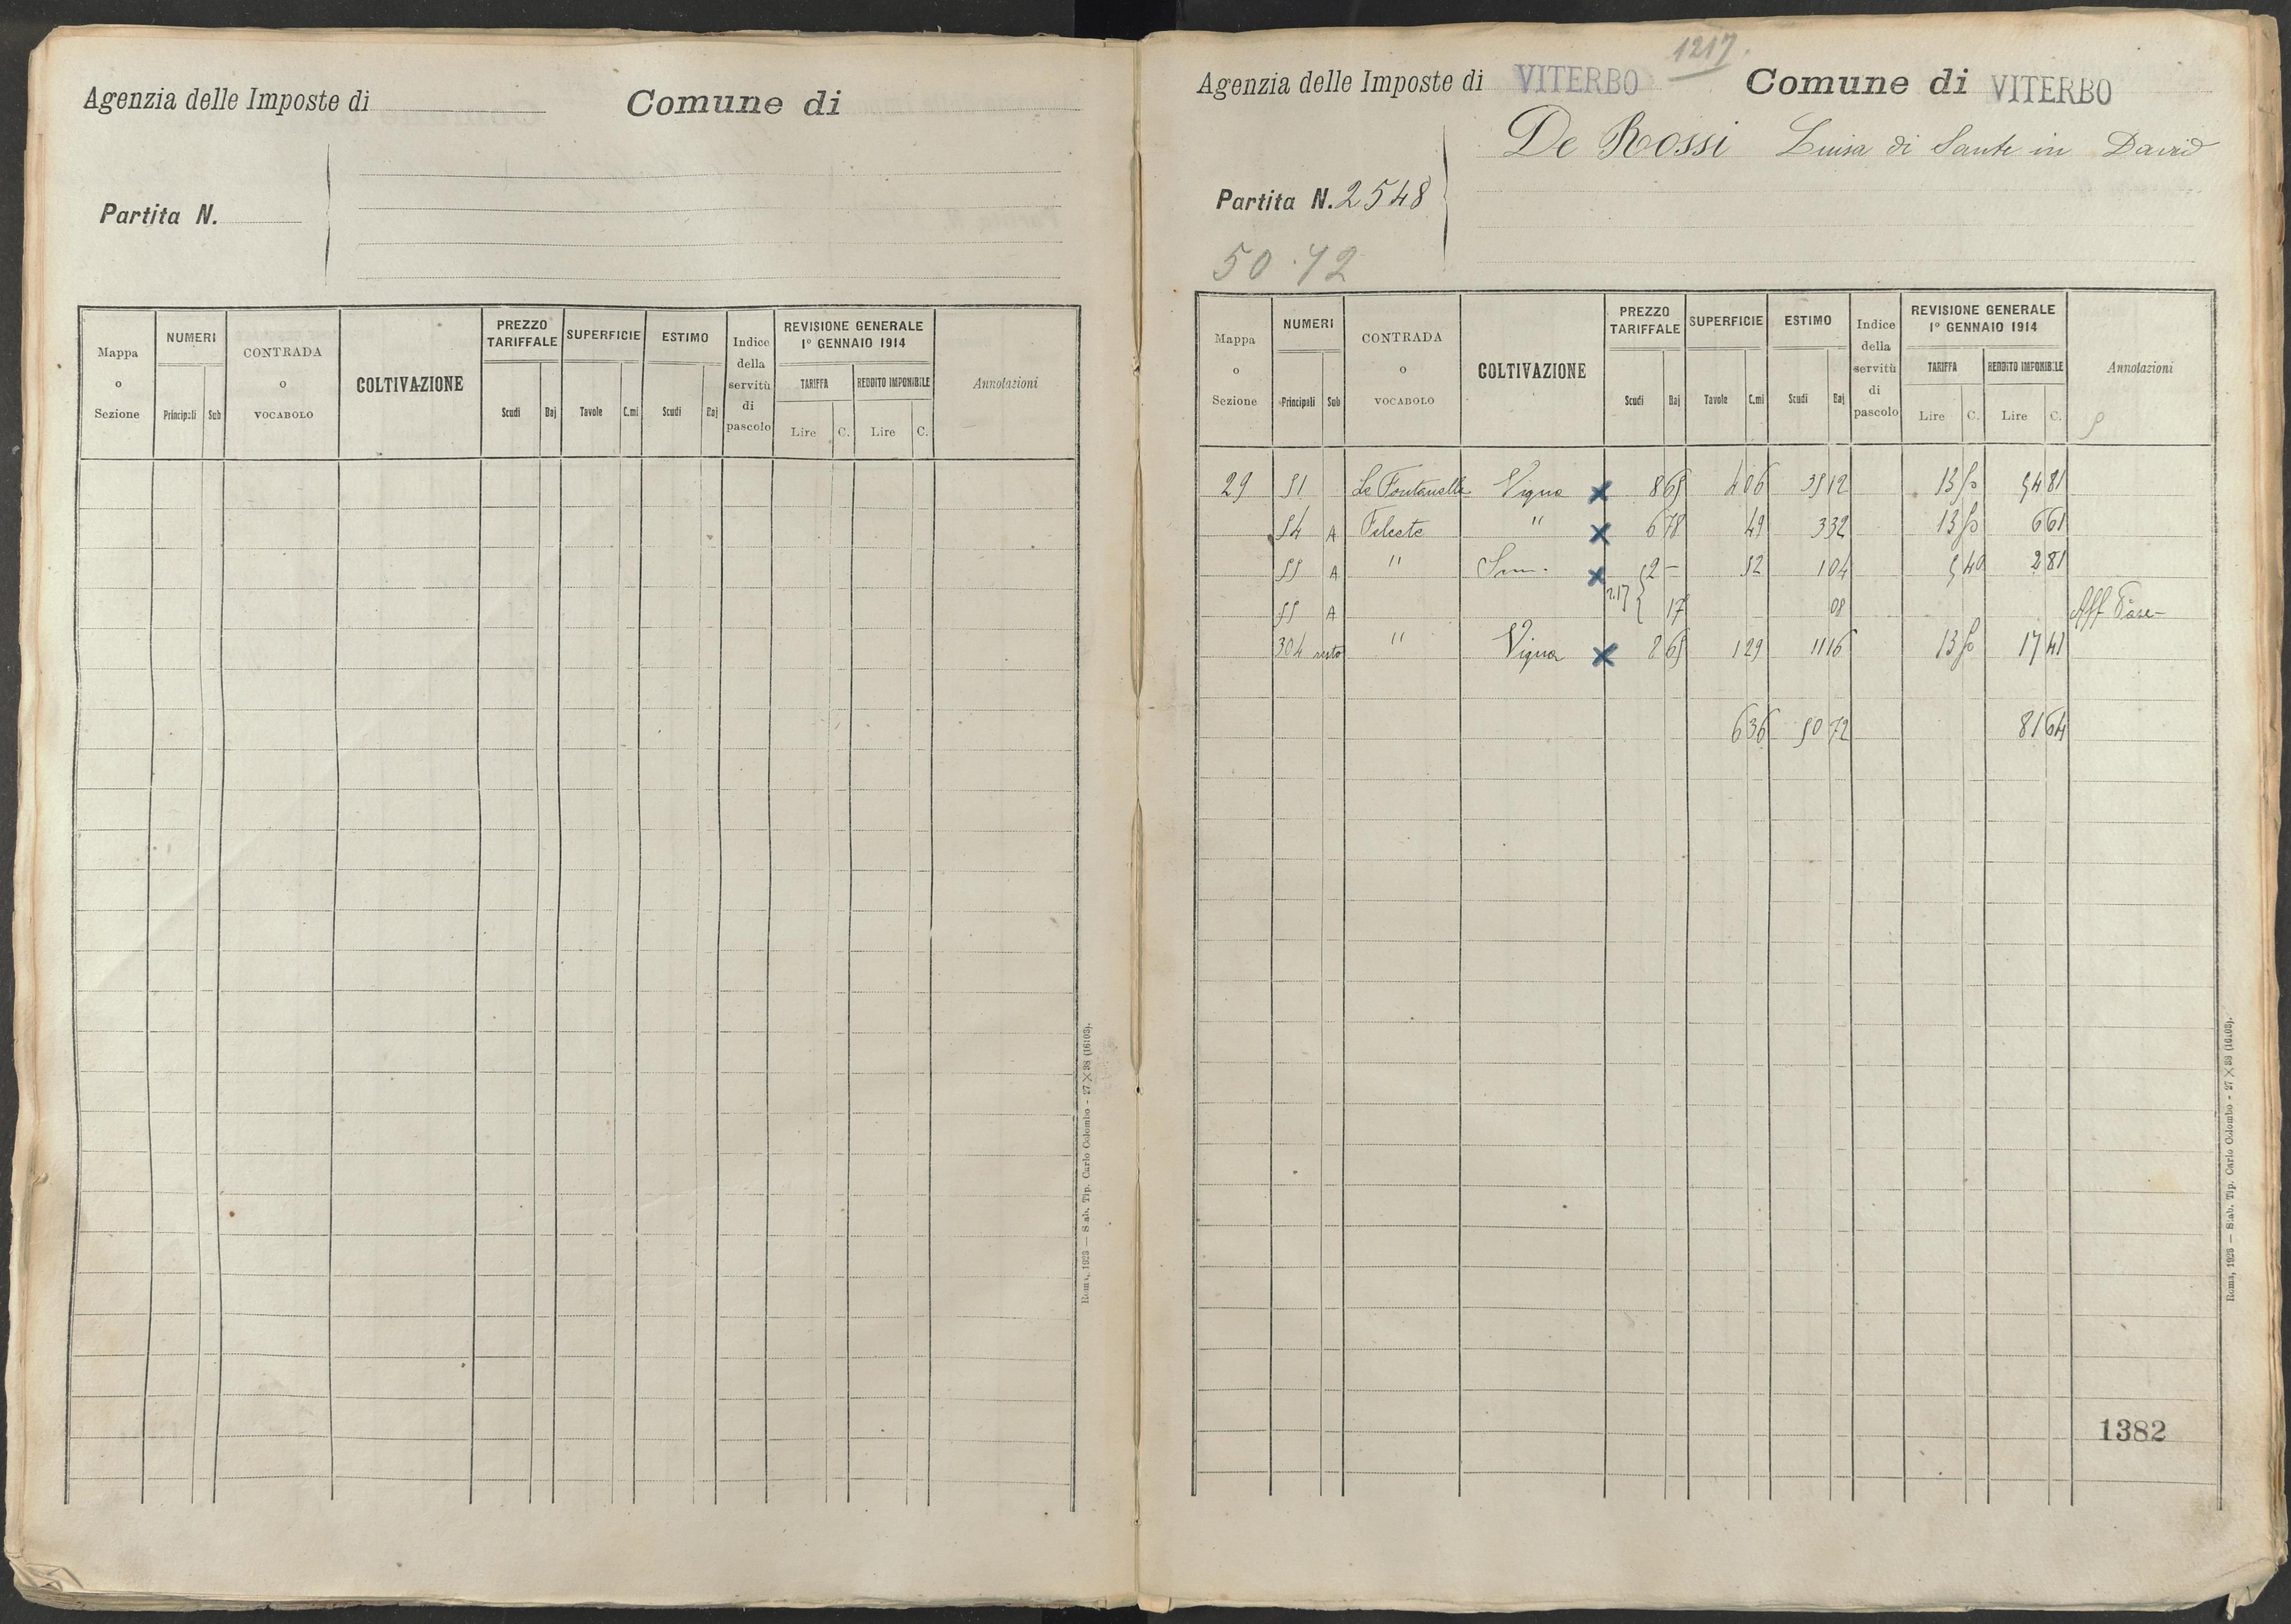 Agenzia delle Imposte di
Comune di
Partita N.
Mappa o Sezione
NUMERI
Principali Sub
CONTRADA o VOCABOLO
COLTIVAZIONE
PREZZO TARIFFALE
Scudi Baj
SUPERFICIE
Tavole C.mi
ESTIMO
Scudi Baj
Indice della servitù di pascolo
REVISIONE GENERALE
1º GENNAIO 1914
TARIFFA
Lire C.
REDDITO IMPONIBILE
Lire C.
Annotazioni
Roma, 1923 — Stab. Tip. Carlo Colombo - 27 X 38 (16103).
1217.
Agenzia delle Imposte di VITERBO
Comune di VITERBO
De Rossi Luisa di Sante in David
Partita N. 2548
50.72
Mappa o Sezione
NUMERI
Principali Sub
CONTRADA o VOCABOLO
COLTIVAZIONE
PREZZO TARIFFALE
Scudi Baj
SUPERFICIE
Tavole C.mi
ESTIMO
Scudi Baj
Indice della servitù di pascolo
REVISIONE GENERALE
1º GENNAIO 1914
TARIFFA
Lire C.
REDDITO IMPONIBILE
Lire C.
Annotazioni
29 51 Le Fontanelle Vigna x 8 65 4 06 35 12 13 50 54 81
54 A " x 6 78 49 3 32 13 50 6 61
55 A " Sem. x 2 - 52 1 04 5 40 2 81
55 A 2.17 17 08
304 resto " Vigna x 8 65 1 29 11 16 13 50 17 41
6 36 50 72 81 64
1382
Roma, 1923 — Stab. Tip. Carlo Colombo - 27 X 38 (16103).